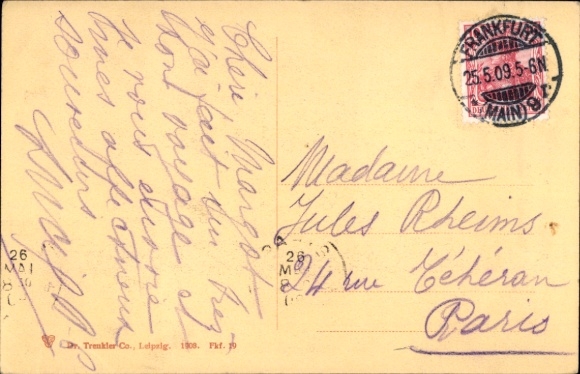 Chère Margot
j'ai fait un très
bon voyage et
je vous envoie
mes affectueux
souvenirs
FRANKFURT
25.5.09.5-6N.
(MAIN) 9
Madame
Jules Rheims
24 rue Téhéran
Paris
26
MAI
26
Dr. Trenkler Co., Leipzig. 1909. Fkf. 19